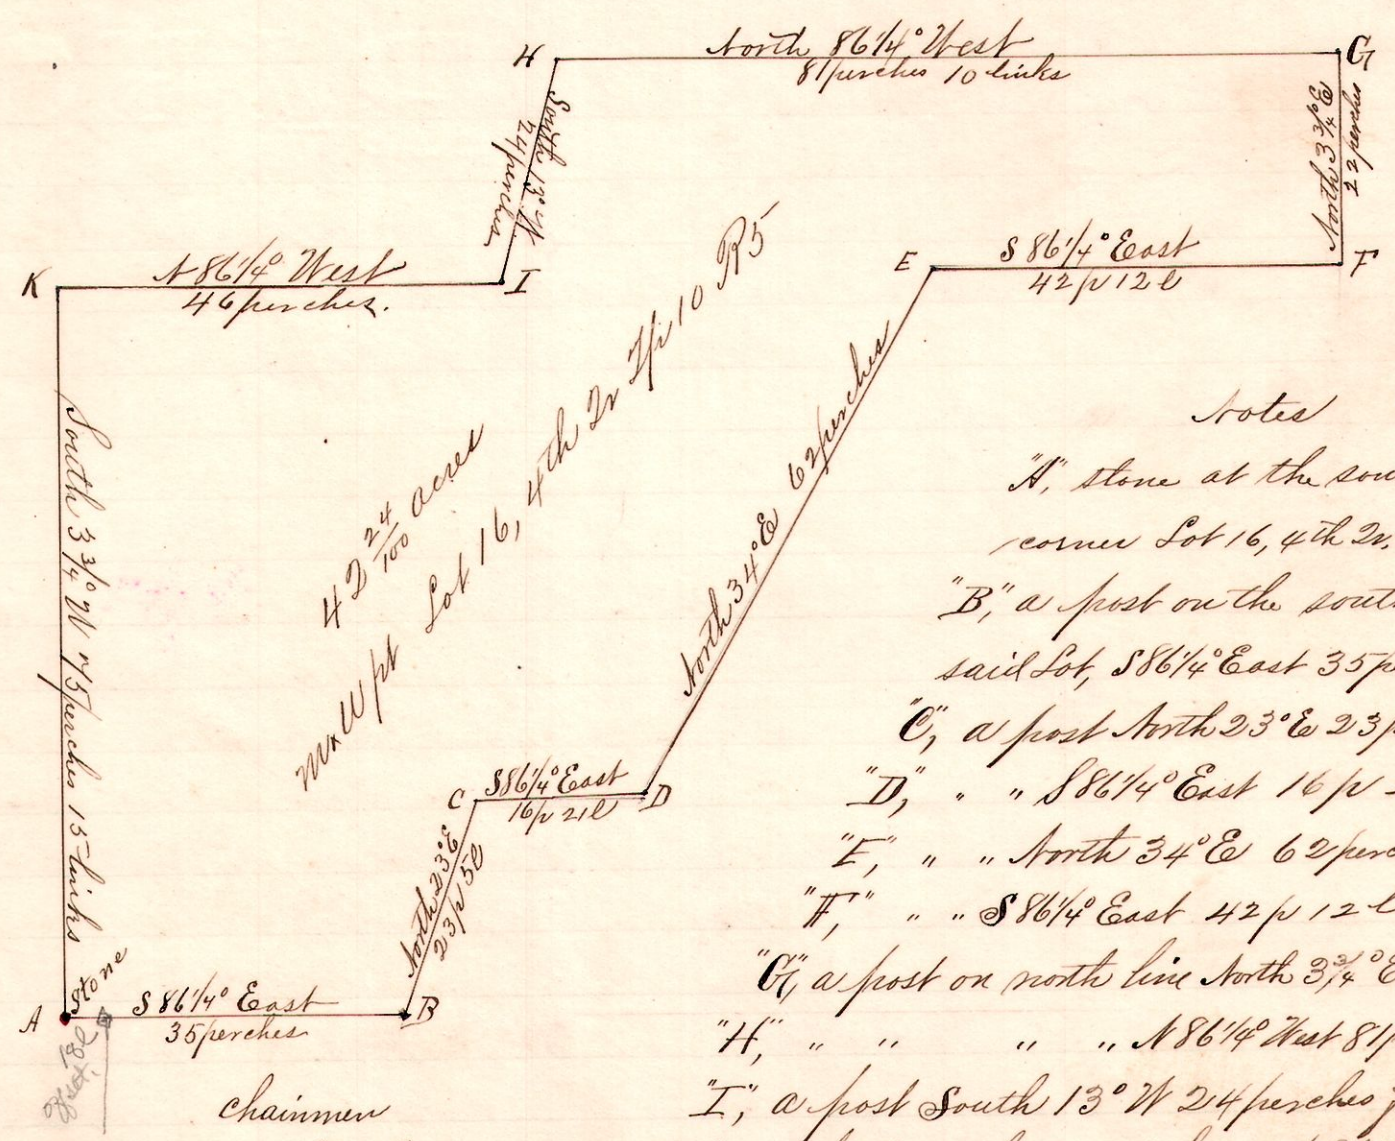 H North 86 1/4° West G
81 perches 10 links
South 13° W
24 perches
North 3 3/4° E
22 perches
K N 86 1/4° West I
46 perches.
E S 86 1/4° East F
42 p 12 l
South 3 3/4° W 75 perches 15 links
42 24/100 acres
pt Lot 16, 4th Qr Tp 10 R5
North 34° E 62 perches
C S 86 1/4° East D
16 p 21 l
North 23° E
23 p 5 l
Stone
A S 86 1/4° East B
35 perches
chainmen
Notes
"A", stone at the sou
corner Lot 16, 4th Qr.
"B", a post on the south
said Lot, S 86 1/4° East 35 p
"C", a post North 23° E 23 p
"D", " " S 86 1/4° East 16 p
"E", " " North 34° E 62 perc
"F", " " S 86 1/4° East 42 p 12 l
"G", a post on north line North 3 3/4° E
"H", " " " " N 86 1/4° West 81 p
"I", a post South 13° W 24 perches